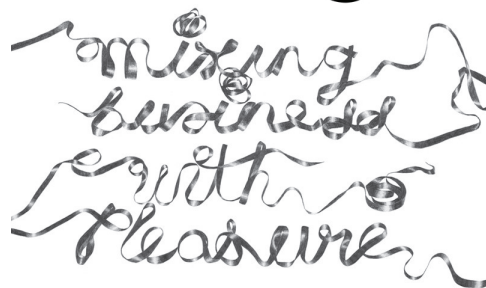 mixing
business
with
pleasure